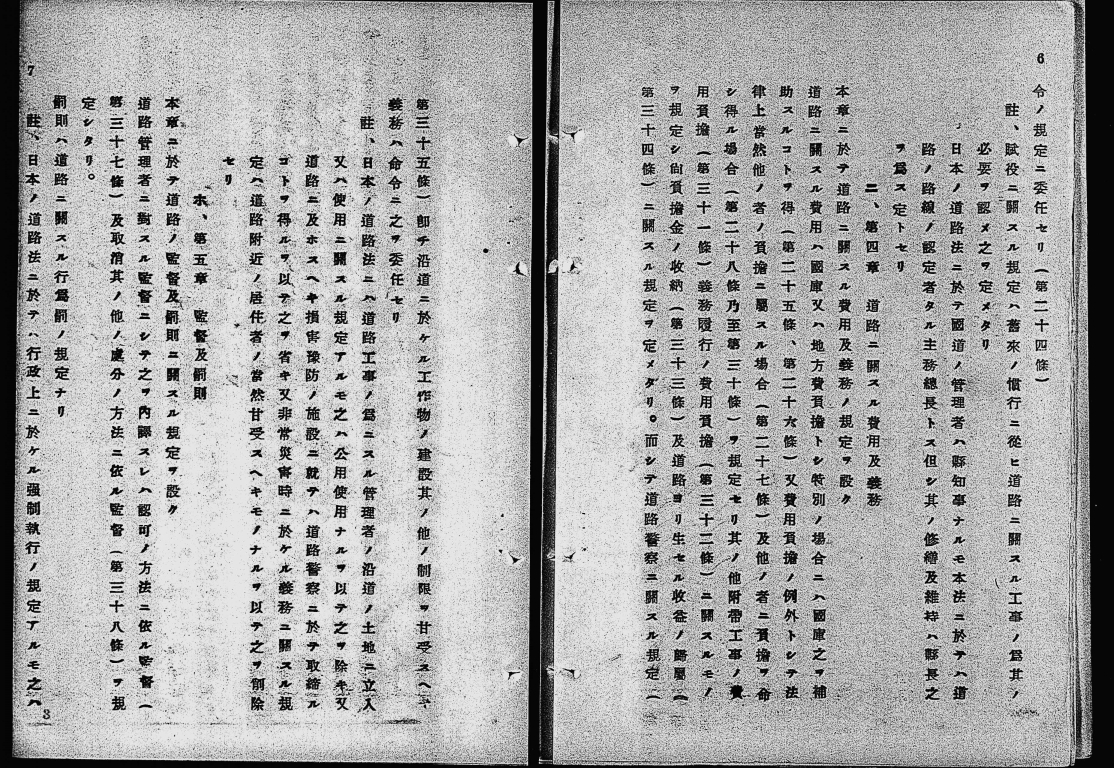 6
令ノ規定ニ委任セリ(第二十四條)
註、賦役ニ關スル規定ハ舊來ノ慣行ニ從ヒ道路ニ關スル工事ノ爲其ノ
必要ヲ認メ之ヲ定メタリ
日本ノ道路法ニ於テ國道ノ管理者ハ縣知事ナルモ本法ニ於テハ道
路ノ路線ノ認定者タル主務總長トス但シ其ノ修繕及維持ハ縣長之
ヲ爲ス定トセリ
ニ、第四章 道路ニ關スル費用及義務
本章ニ於テ道路ニ關スル費用及義務ノ規定ヲ設ク
道路ニ關スル費用ハ國庫又ハ地方費負擔トシ特別ノ場合ニハ國庫之ヲ補
助スルコトヲ得(第二十五條、第二十六條)又費用負擔ノ例外トシテ法
律上當然他ノ者ノ負擔ニ屬スル場合(第二十七條)及他ノ者ニ負擔ヲ命
シ得ル場合(第二十八條乃至第三十條)ヲ規定セリ其ノ他附帶工事ノ費
用負擔(第三十一條)義務履行ノ費用負擔(第三十二條)ニ關スルモノ
ヲ規定シ尙負擔金ノ收納(第三十三條)及道路ヨリ生セル收益ノ歸屬(
第三十四條)ニ關スル規定ヲ定メタリ。而シテ道路警察ニ關スル規定(
第三十五條)卽チ沿道ニ於ケル工作物ノ建設其ノ他ノ制限ヲ甘受スヘキ
義務ハ命令ニ之ヲ委任セリ
註、日本ノ道路法ニハ道路工事ノ爲ニスル管理者ノ沿道ノ土地ニ立入
又ハ使用ニ關スル規定アルモ之ハ公用使用ナルヲ以テ之ヲ除キ又
道路ニ及ホスヘキ損害豫防ノ施設ニ就テハ道路警察ニ於テ取締ル
コトヲ得ルヲ以テ之ヲ省キ又非常災害時ニ於ケル義務ニ關スル規
定ハ道路附近ノ居住者ノ當然甘受スヘキモノナルヲ以テ之ヲ削除
セリ
ホ、第五章 監督及罰則
本章ニ於テ道路ノ監督及罰則ニ關スル規定ヲ設ク
道路管理者ニ對スル監督ニシテ之ヲ內譯スレハ認可ノ方法ニ依ル監督(
第三十七條)及取消其ノ他ノ處分ノ方法ニ依ル監督(第三十八條)ヲ規
定シタリ。
罰則ハ道路ニ關スル行爲罰ノ規定ナリ
註、日本ノ道路法ニ於テハ行政上ニ於ケル强制執行ノ規定アルモ之ハ
7
3